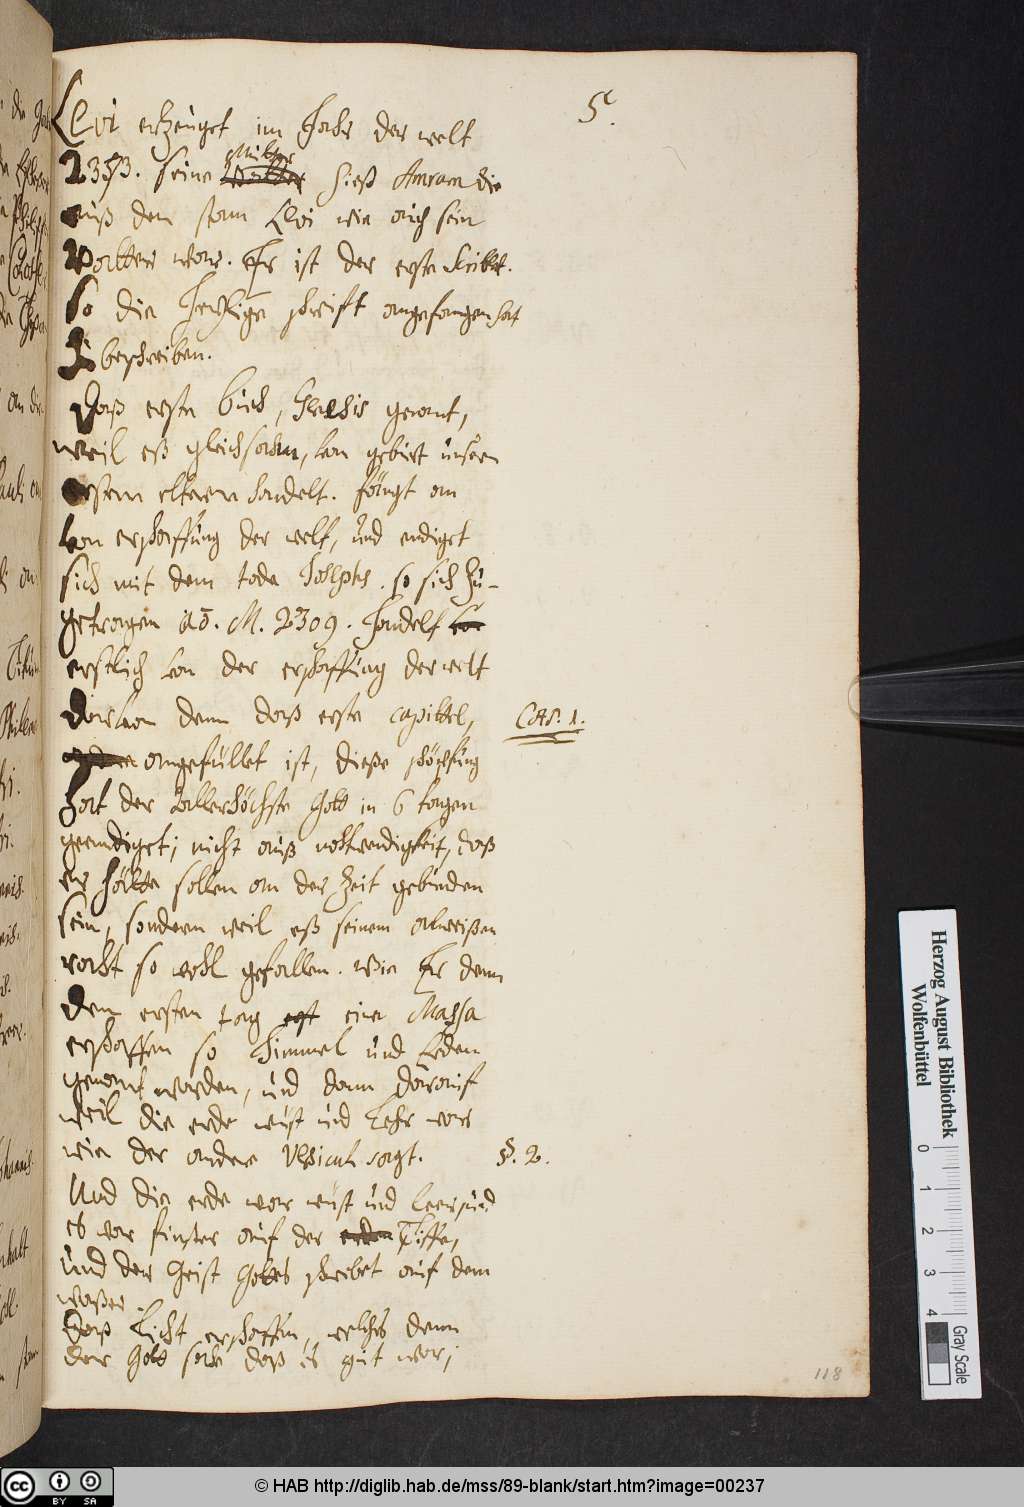 5.
Levi erzeuget im Jahr der welt
2353. seine Mutter hieß Amram die
auß dem stam Levi wie auch sein
Vatter war. Er ist der erste Scribt.
so die Heylige schrift angefangen hat
Zu beschreiben.
Daß erste buch, Genesis genant,
weil eß gleichsahm, von geburt unsern
ersten eltern handelt. fängt an
von erschaffung der welt, und endiget
sich mit dem tode Josephs. so sich zu-
getragen aō. M. 2309. Handelt
erstlich von der erschaffung der welt
darvon denn daß erste capittel,
Cap. 1.
angefüllet ist, dieße schöpfung
hat der allerhöchste Gott in 6 tagen
geendiget; nicht auß nohtwendigkeit, daß
er hätte sollen an der Zeit gebunden
sein, sondern weil eß seinem alweißen
raht so wohl gefallen. wie Er denn
den ersten tag eine Massa
erschaffen so Himmel und Erden
genant worden, und dann darauf
weil die erde wüst und Lehr war
wie der andere Vsicul sagt.
§. 2.
Und die erde war wüst und leer und
es war finster auf der Tiffe,
und der Geist Gottes schwebet auf dem
waßer.
Daß Licht erschaffen, welches denn
der Gott sahe daß es gut war;
118
Herzog August Bibliothek
Wolfenbüttel
0 1 2 3 4
Gray Scale
cc BY SA
© HAB http://diglib.hab.de/mss/89-blank/start.htm?image=00237